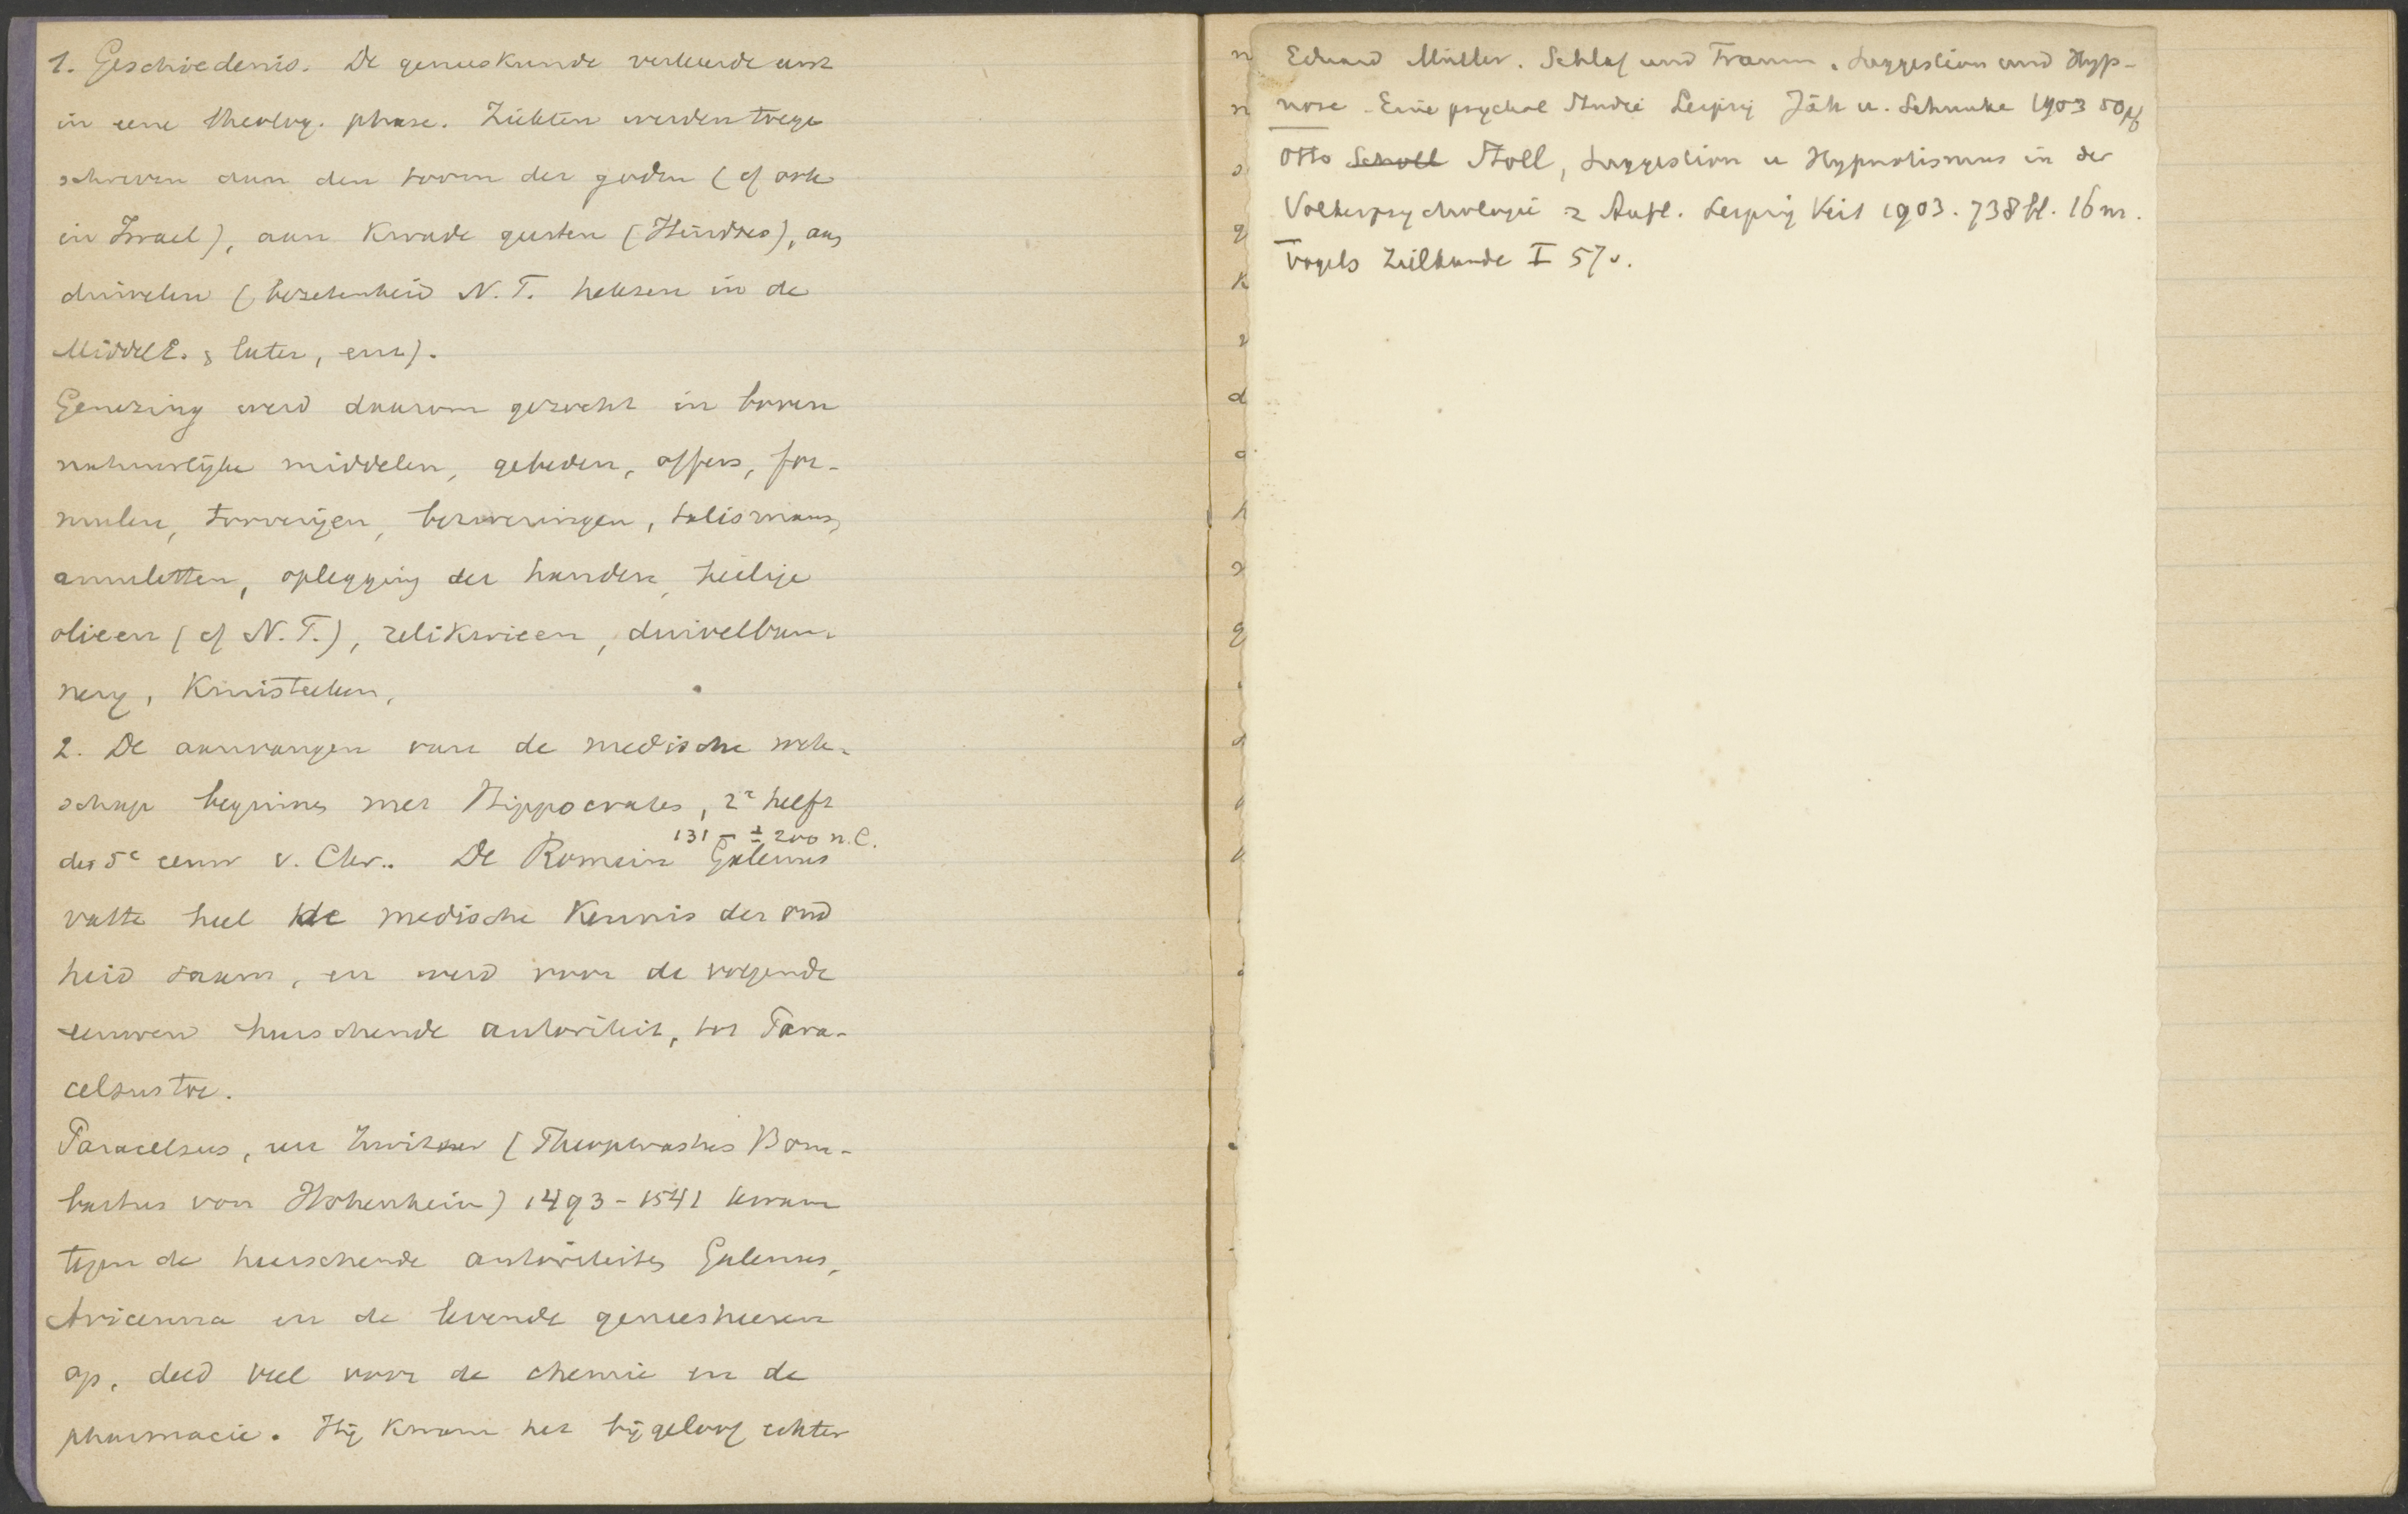 1. Geschiedenis. De geneeskunde verkeerde eerst
in eene theolog. phase. Ziekten werden toege
schreven aan den toorn der goden (cf ook
in Israel), aan kwade geesten (Hindoes), aan
duivelen (bezetenheid N.T. heksen in de
MiddelE. & later, enz).
Genezing werd daarom gezocht in boven
natuurlijke middelen, gebeden, offers, for-
mulen, tooverijen, bezweringen, talismans,
amuletten, oplegging der handen, heilige
olieen (cf N.T.), relikwieen, duivelban-
nerij, Kruisteeken,
2. De aanvangen van de medische wete-
schap beginnen met Hippocrates, 2e helft
131 - ± 200 n.C.
der 5e eeuw v. Chr.. De Romein Galenus
vatte heel de medische Kennis der oud
heid saam, en werd voor de volgende
eeuwen heerschende autoriteit, tot Para-
celsus toe.
Paracelsus, een Zwitser (Theophrastus Bom-
bastus von Hohenheim) 1493-1541 kwam
tegen de heerschende autoriteiten Galenus,
Avicenna en de levende geneesheeren
op, deed veel voor de chemie en de
pharmacie. Hij kwam het bijgeloof echter
Eduard Müller. Schlaf und Traum. Suggestion und Hyp-
nose - Eine psychol Studie Leipzig Jäh u. Schunke 1903 50 pf
Otto Scholl Stoll, Suggestion u Hypnotismus in der
Volkerpsychologie 2 Aufl. Leipzig Veit 1903. 738 bl. 16 m.
Vogels Zielkunde I 57v.